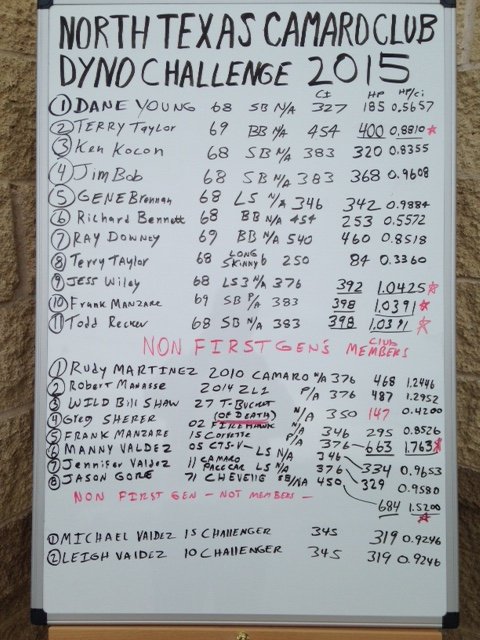 NORTH TEXAS CAMARO CLUB
DYNO CHALLENGE 2015
CI HP HP/ci
1 DANE YOUNG 68 SB N/A 327 185 0.5657
2 TERRY Taylor 69 BB N/A 454 400 0.8810 ☆
3 Ken Kocon 68 SB N/A 383 320 0.8355
4 Jim Bob 68 SB N/A 383 368 0.9608
5 GENE Brennan 68 LS N/A 346 342 0.9884
6 Richard Bennett 68 BB N/A 454 253 0.5572
7 RAY DOWNEY 69 BB N/A 540 460 0.8518
8 Terry Taylor 68 LONG SKINNY 6 250 84 0.3360
9 JESS Wiley 68 LS3 N/A 376 392 1.0425 ☆
10 Frank MANZARE 69 SB P/A 383 398 1.0391 ☆
11 Todd Recker 68 SB N/A 383 398 1.0391 ☆
NON FIRST GEN'S CLUB MEMBERS
1 RUDY MARTINEZ 2010 CAMARO N/A 376 468 1.2446
2 Robert Manasse 2014 ZL1 P/A 376 487 1.2952
3 WILD Bill SHAW 27 T-BUCKET (OF DEATH) N/A 350 147 0.4200
4 Greg SHERER 02 FIREHAWK N/A 346 295 0.8526
5 FRANK MANZARE 15 Corvette P/A 376 663 1.763 ☆
6 MANNY VALDEZ 05 CTS-V LS N/A 346 334 0.9653
7 Jennifer Valdez 11 CAMARO PACECAR LS N/A 376 329 0.9580
8 JASON GORE 71 CHEVELLE SB/NA 450 684 1.5200 ☆
NON FIRST GEN - NOT MEMBERS -
1 MICHAEL VALDEZ 15 CHALLENGER 345 319 0.9246
2 LEIGH VALDEZ 10 CHALLENGER 345 319 0.9246